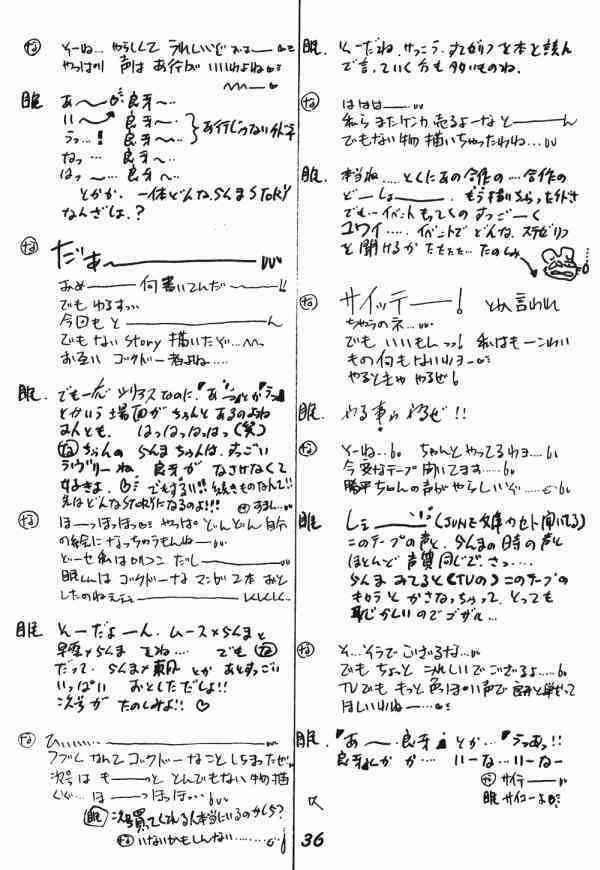 な そーね…やらしくて うれしいけど…
やっぱり 声は あ行が いいわよね
眠 あ〜 良牙〜…
い〜 良牙〜…
うっ…! 良牙〜…
なっ… 良牙〜…
はっ〜… 良牙〜…
あ行じゃない
とかか. 一体どんならんまSTORY
なんざしょ.?
な だぁーーーー
あめーー 何書いてんだ〜ーー!!
でも ゆるすっ…
今回も とーーーーーん
でもない story 描いたぞ…
お互い ゴクドー者よね….
眠. でも一応 シリアスなのに.「あっ」とか「うっ」
とかいう場面が ちゃんと あるのよね
なんとも. はっはっはっはっ(笑)
なちゃんの らんまちゃんは.すっごい
ラヴリーね. 良牙が なさけなくて
好きよ. ♡
先はどんなSTORYになるのよ!!!
な ほーっほっほっ やっぱ どんどん 自分
の絵に なっちゃうもんねー
どーせ私は ロリコン だしーー
眠くんは ゴクドーな マンガ 2本 おと
したのねぇ
眠 そーだよーん. ムース×らんまと
早雲×らんま でね… でも な
だって. らんま×東風 とか あとすっごい
いっぱい おとしただしょ!!
次号が たのしみよ!! ♡
な ひぃ……
なんて ゴクドーな こと しちまったぜ
次号は もーーっと とんでもない物描
くぐ… ほーーっほっほ…
眠 次号買ってくれる人本当にいるのかしら?
な いないかもしんない………
眠. そーだね. けっこう. すてゼリフを本と読ん
で言っていく方も 多いものね.
な ははは……
私ら またケンカ 売るよーな とーーーーん
でもない物 描いちゃったわね…
眠. 本当ね….. とくにあの合作の….合作の
どーしょーー. もう描いちゃった
でも…イベント もってくの すっごーく
コワイ….. イベントで どんな. ステゼリフ
を 聞けるか たのしみ
な サイッテーー! とか 言われ
ちゃうのネ…
でも いいもんっっ! 私はもーこわい
もの何もないわヨー
やるときゃ やるぜ!
眠. やる事 やるぜ!!
な そーね… ちゃんと やってるわヨ….
今 変なテープ 聞いてます……
勝平ちゃんの声が やらしいぞ……
眠 しぇーー(JUNE文庫カセット聞いてる)
このテープの声と. らんまの男の時の声と
ほとんど 声質同じで.さっ…..
らんま みてると(TVの)このテープの
キャラと かさなっちゃって. とっても
恥じかしいのでゴザル…
な そ…そうで ございるな…
でも ちょっと うれしいでござるよ……
TVでも もっと 色っぽい声で 良牙と
ほしいわねー…
眠. 「あ〜.良牙」 とか…「うっあっ!!
良牙くんか か…. いーな…いーなー
な サイテーー
眠 サイコーよ
36